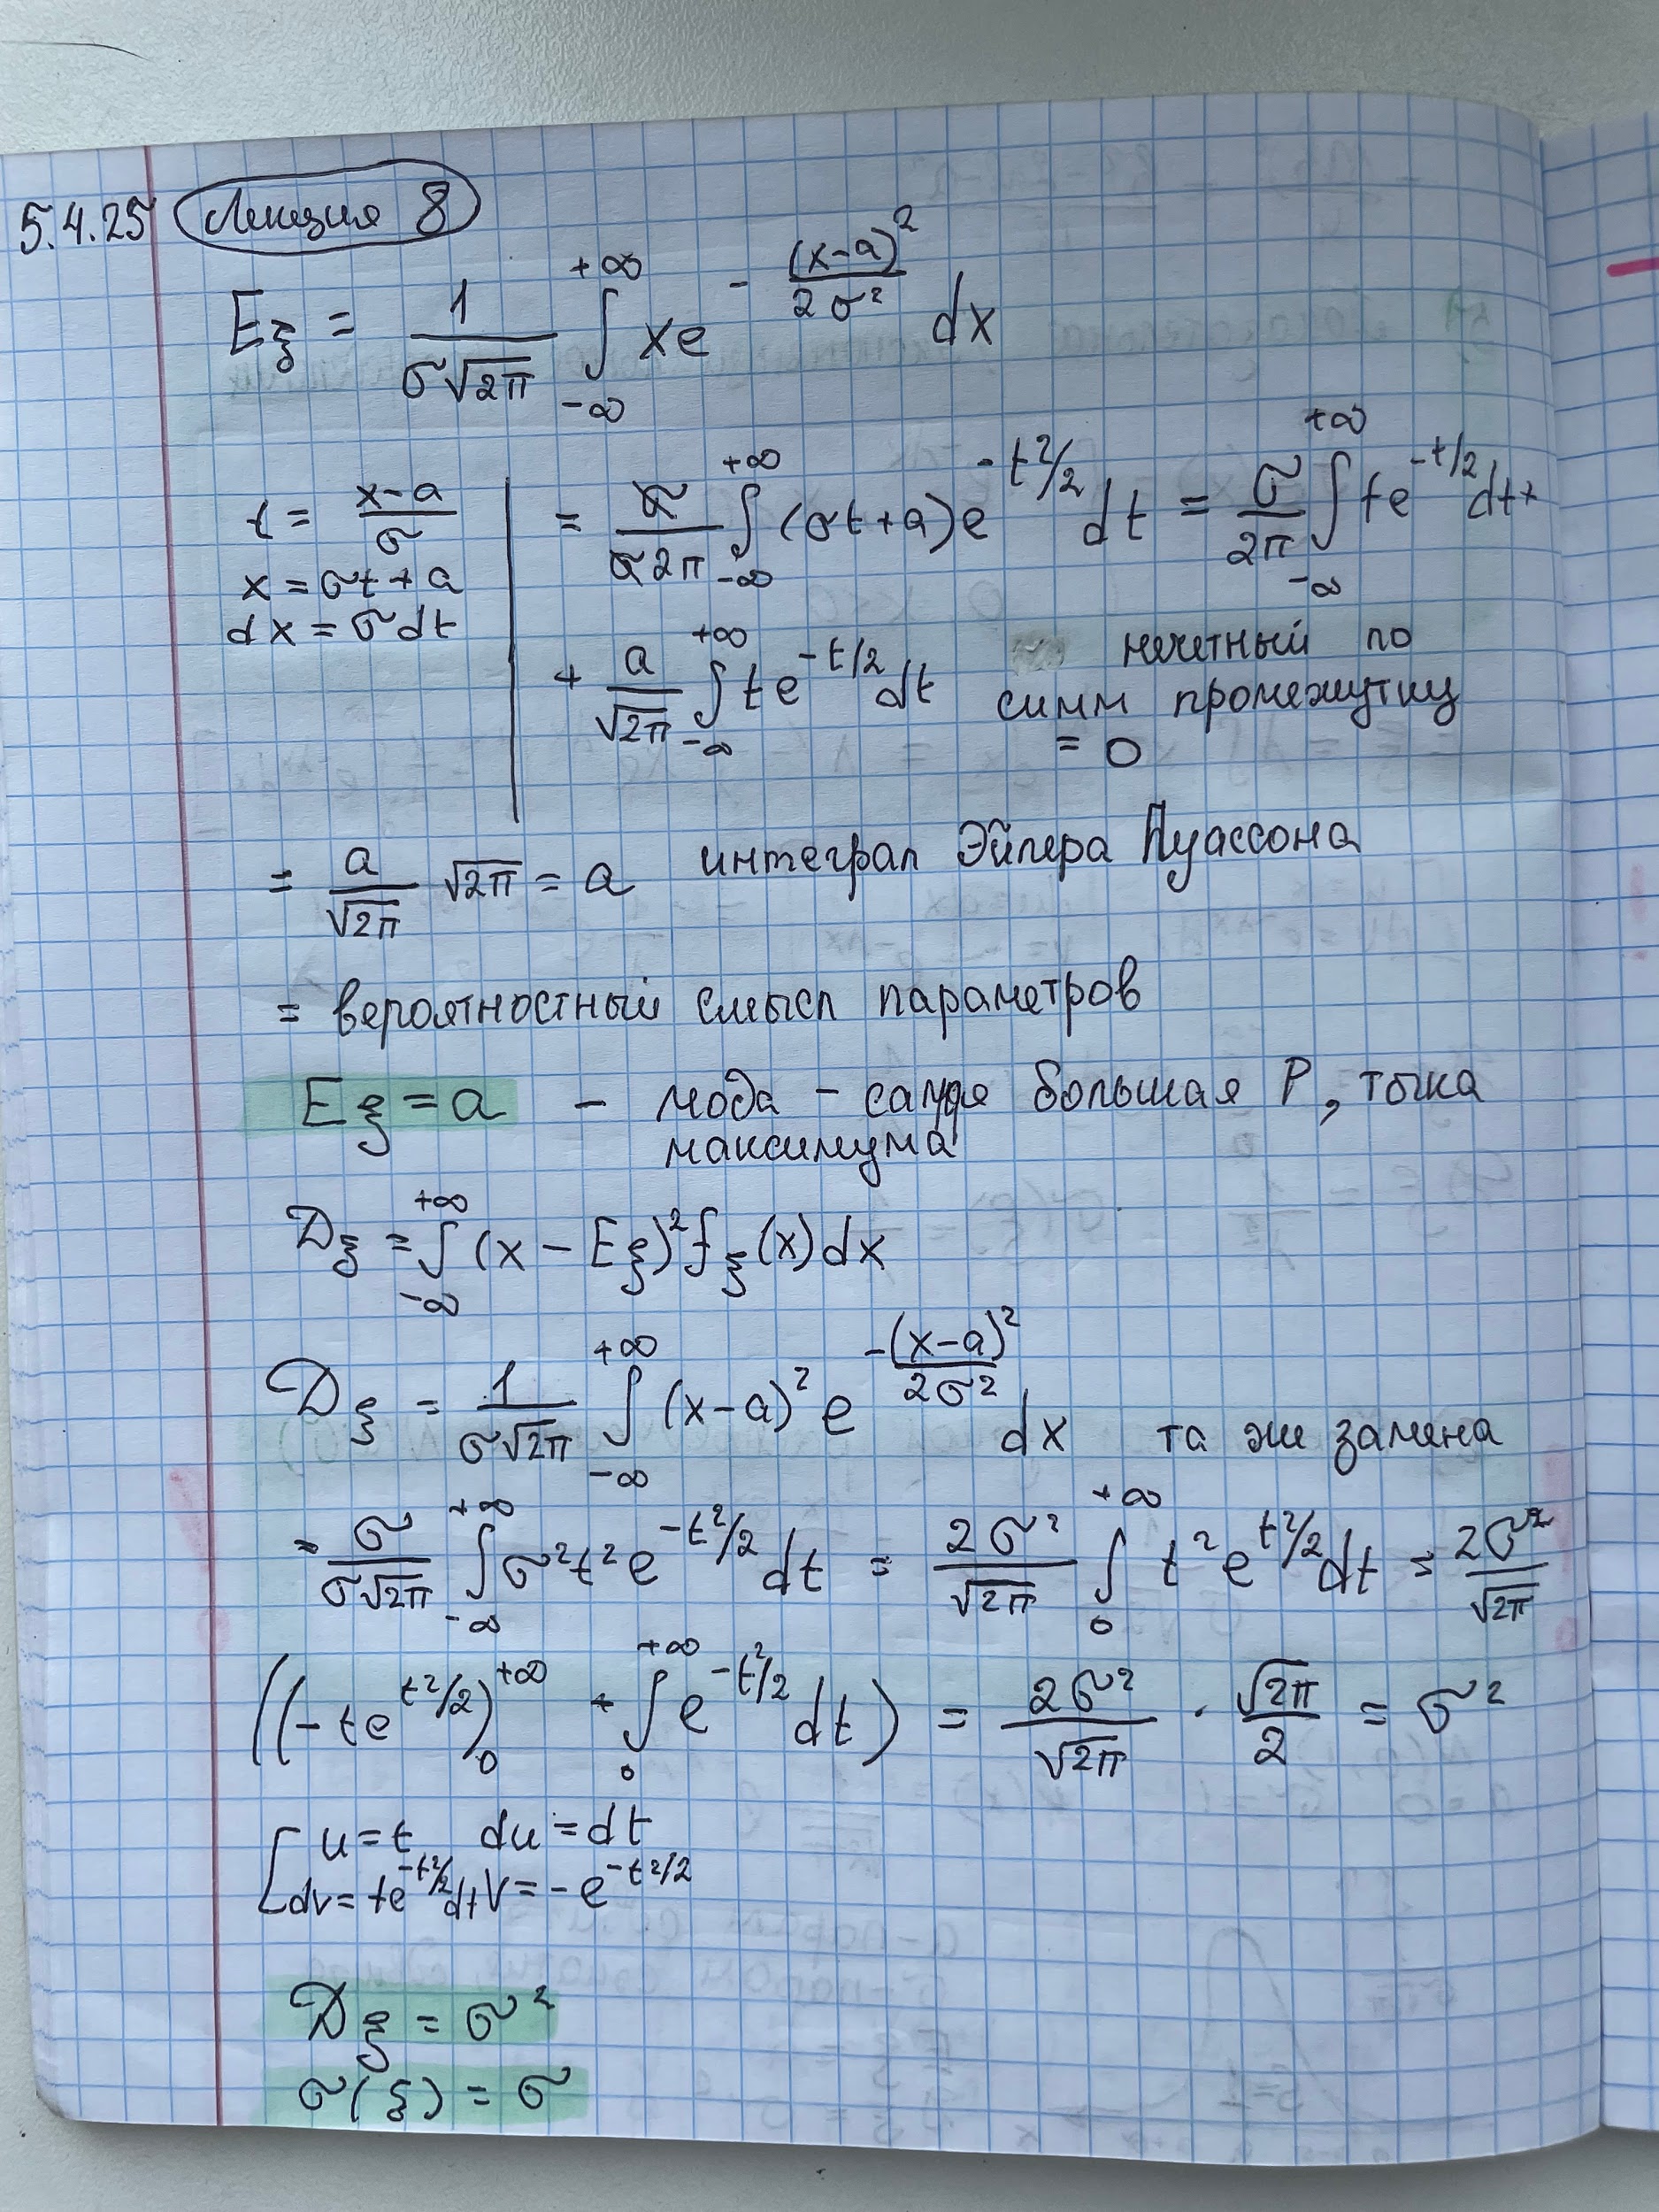 5.4.25 Лекция 8
Eξ = 1/(σ√2π) ∫_{-∞}^{+∞} xe^{-(x-a)²/2σ²} dx
t = (x-a)/σ
x = σt + a
dx = σdt
= σ/(σ2π) ∫_{-∞}^{+∞} (σt+a)e^{-t²/2} dt = σ/2π ∫_{-∞}^{+∞} te^{-t/2} dt +
+ a/√2π ∫_{-∞}^{+∞} te^{-t/2} dt нечетный по
симм промежутку
= 0
= a/√2π √2π = a интеграл Эйлера Пуассона
= вероятностный смысл параметров
Eξ = a - мода - самая большая P, точка
максимума
Dξ = ∫_{-∞}^{+∞} (x - Eξ)² f_ξ(x)dx
Dξ = 1/(σ√2π) ∫_{-∞}^{+∞} (x-a)² e^{-(x-a)²/2σ²} dx та же замена
= σ/(σ√2π) ∫_{-∞}^{+∞} σ²t²e^{-t²/2} dt = 2σ²/√2π ∫_{0}^{+∞} t² e^{t²/2} dt = 2σ²/√2π
((-te^{t²/2})_{0}^{+∞} + ∫_{0}^{+∞} e^{-t²/2} dt) = 2σ²/√2π · √2π/2 = σ²
[u = t du = dt
dv = te^{-t²/2}dt V = -e^{-t²/2}
Dξ = σ²
σ(ξ) = σ